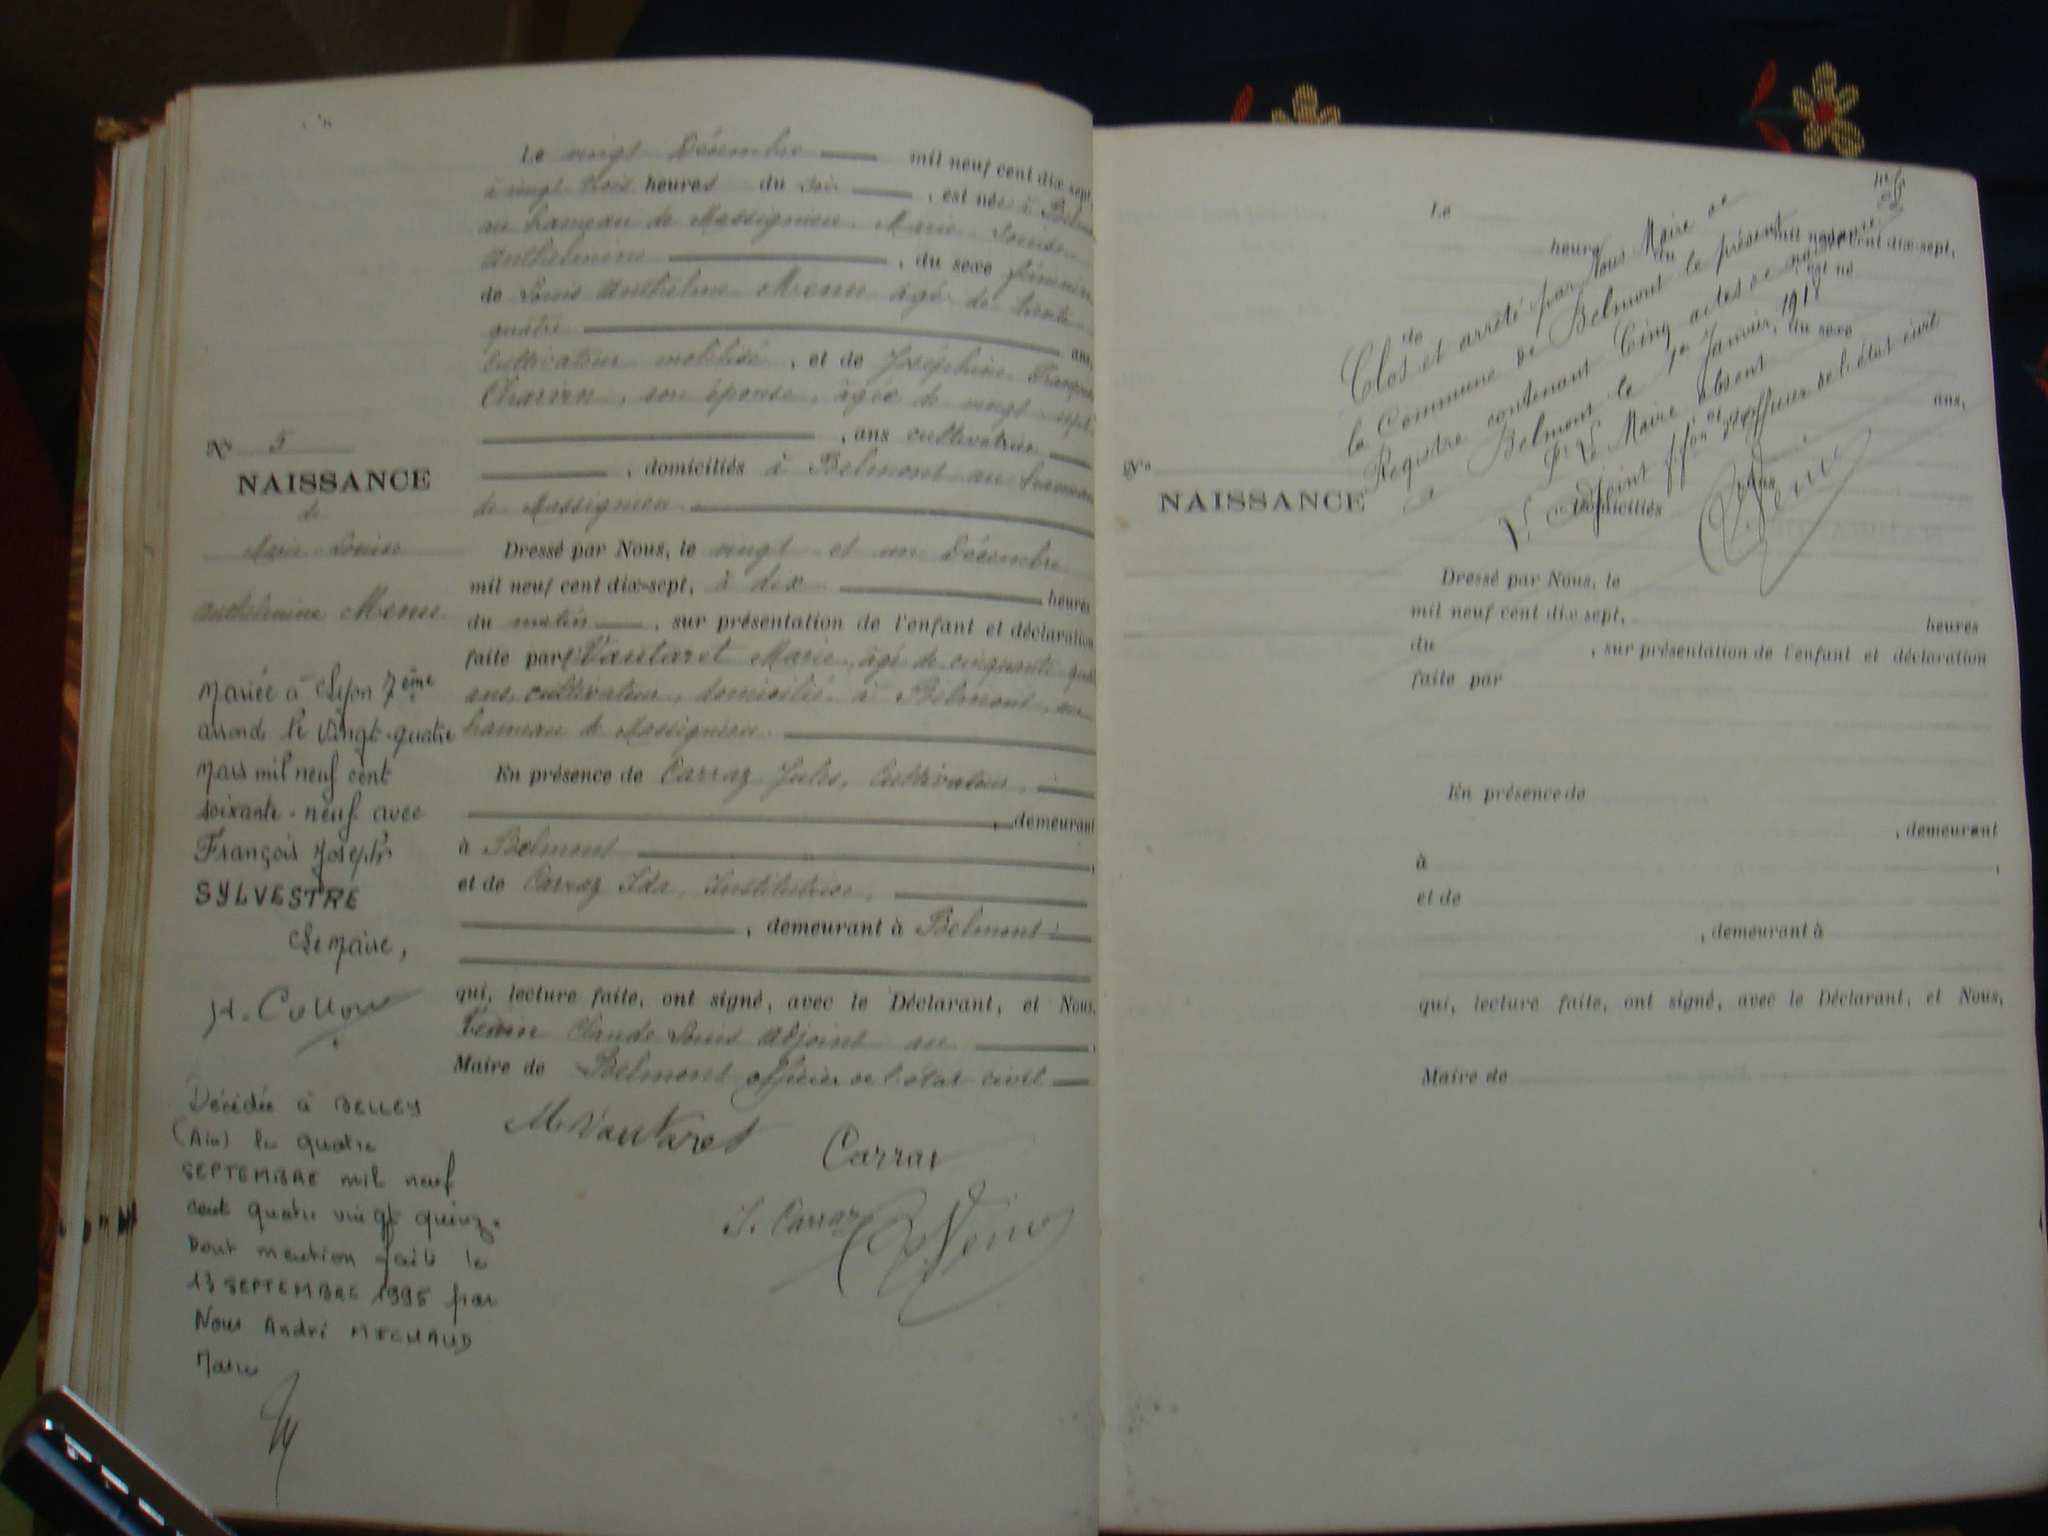 Le vingt Décembre mil neuf cent dix-sept,
à vingt trois heures du soir, est née à
au hameau de Massignieu, Marie Louise
Anthelmine, du sexe féminin
de Louis Anthelme Menu âgé de trente
quatre ans,
cultivateur mobilisé, et de Joséphine
son épouse, âgée de vingt sept
, ans cultivatrice
, domiciliés à Belmont au hameau
de Massignieu
Dressé par Nous, le vingt et un Décembre
mil neuf cent dix-sept, à dix heures
du matin, sur présentation de l'enfant et déclaration
faite par Vautaret Marie, âgé de cinquante
ans, cultivateur, domicilié à Belmont, au
hameau de Massignieu
En présence de Carraz Jules, Cultivateur,
, demeurant
à Belmont,
et de Carraz Ida, Institutrice,
, demeurant à Belmont
qui, lecture faite, ont signé, avec le Déclarant, et Nous,
Claude Louis Adjoint au
Maire de Belmont officier de l'état civil
M. Vautaret Carraz
I. Carraz
N° 5
NAISSANCE
de
Marie Louise
Anthelmine Menu
Mariée à Lyon 7ème
arrond le vingt-quatre
Mars mil neuf cent
soixante-neuf avec
François Joseph
SYLVESTRE
Le Maire,
Décédée à BELLEY
(Ain) le quatre
SEPTEMBRE mil neuf
cent quatre vingt quinze
Dont mention faite le
13 SEPTEMBRE 1995 par
Nous André MICHAUD
Maire
Le
mil neuf cent dix-sept,
heure du
est né
de
du sexe
ans,
ans
domiciliés
Clos et arrêté par Nous Maire de
la Commune de Belmont le présent
Registre contenant Cinq actes de naissance
à Belmont le 1er Janvier, 1918
Pr Le Maire absent
L'Adjoint officier de l'état civil
N°
NAISSANCE
Dressé par Nous, le
mil neuf cent dix-sept, heures
du , sur présentation de l'enfant et déclaration
faite par
En présence de
, demeurant
à ,
et de
, demeurant à
qui, lecture faite, ont signé, avec le Déclarant, et Nous,
Maire de